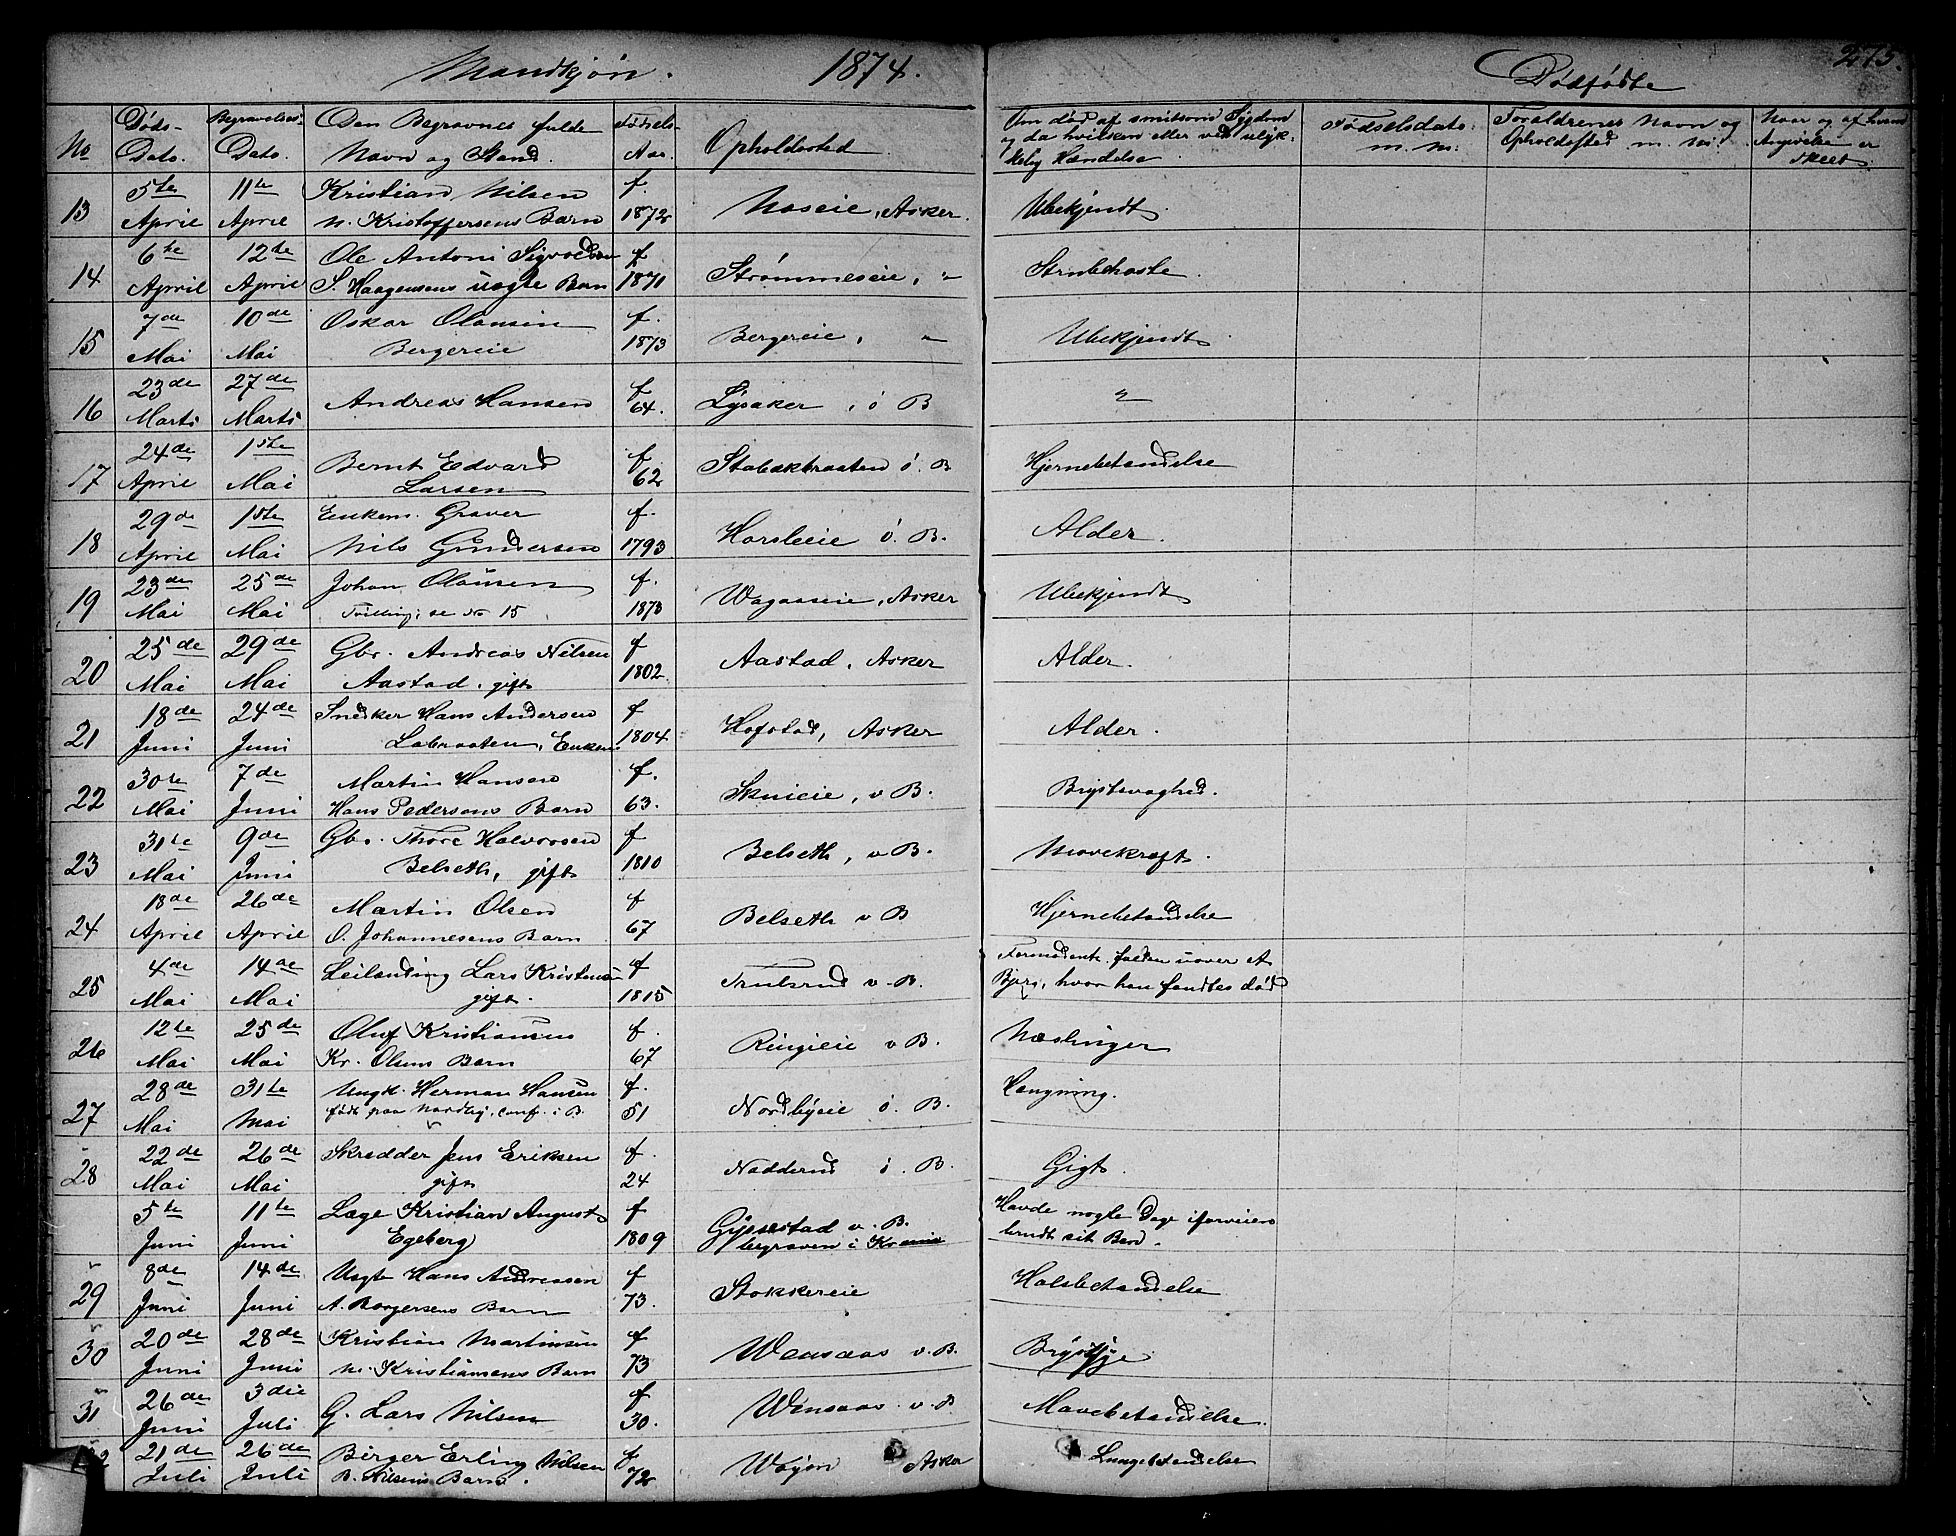 Mandkjøn. 1874. Dødfødte 275.
No Døds-Dato. Begravelses-Dato. Den Begravnes fulde Navn og Stand. Fødsels-Aar. Opholdssted. Om død af smitsom Sygdom og da hvilken eller ved ulykkelig Hændelse. Fødselsdato. m. m. Forældrenes Navn og Opholdssted m. m. Naar og af hvem Angivelse er skeet.
13 5te April 11te April Kristian Nilsen N. Kristoffersens Barn f. 1872 Næseie, Asker. Ubekjendt.
14 6te April 12te April Ole Antoni Sigvoldsen S. Haagensens uægte Barn f. 1871 Strømmeseie, " Strubehoste.
15 7de Mai 10de Mai Oskar Olausen Bergereie f. 1873 Bergereie, " Ubekjendt.
16 23de Marts 27de Marts Andreas Hansen f. 64. Lysaker, ø B "
17 24de April 1ste Mai Bernt Edvard Larsen f. 62 Stabækbraaten ø. B Hjernebetændelse
18 29de April 1ste Mai Enkem. Graver Nils Gundersen f. 1793 Horsleeie ø. B. Alder.
19 23de Mai 25de Mai Johan Olausen Tvilling; se No 15. f. 1873 Wogaseie, Asker Ubekjendt
20 25de Mai 29de Mai Gbr. Andreas Nilsen Aastad, gift f 1802. Aastad, Asker Alder.
21 18de Juni 24de Juni Snedker Hans Andersen Labraaten, Enkem f 1804 Hofstad, Asker Alder.
22 30te Mai 7de Juni Martin Hansen Hans Pedersens Barn f. 63. Skuieie, v B. Brystsvaghed.
23 31te Mai 9de Juni Gbr. Thore Halvorsen Belseth, gift f 1810 Belseth, v B. Mavekræft.
24 18de April 26de April Martin Olsen O. Johannesens Barn f 67 Belseth v B Hjernebetændelse
25 4de Mai 14de Mai Leilending Lars Kristensen gift. f 1815 Trulsrud v. B. Formodentl. falden udover et Bjerg, hvor han fandtes død
26 12te Mai 25de Mai Oluf Kristiansen Kr. Olsens Barn f. 67 Ringieie v B. Næslinger
27 28de Mai 31te Mai Ungk. Herman Hansen født paa Nordby, conf. i B. f. 51 Nordbyeie ø. B. Hængning.
28 22de Mai 26de Mai Skrædder Jens Eriksen gift f. 24 Nadderud ø. B. Gigt.
5te Juni 11te Juni Læge Kristian August Egeberg f 1809 Gyssestad v. B. begraven i Kr ania Havde nogle Dage iforveien brudt sit Ben.
29 8de Juni 14de Juni Uægte Hans Andreassen A. Borgersens Barn f 73. Stokkereie Halsbetændelse
30 20de Juni 28de Juni Kristian Martinsen M. Kristiansens Barn f 73 Wensaas v. B. Brystsyge
31 26de Juni 3die Juli G. Lars Nilsen f 30. Wensaas v. B Mavebetændelse.
32 21de Juli 26de Juli Birger Erling Nilsen B. Nilsens Barn. f 72 Wøjen Asker Lungebetændelse